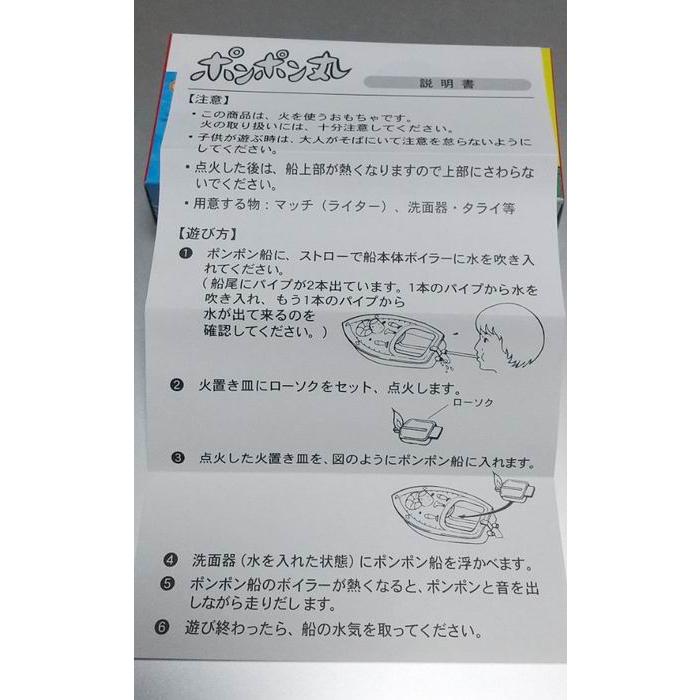 ポンポン丸
説明書
【注意】
・この商品は、火を使うおもちゃです。
火の取り扱いには、十分注意してください。
・子供が遊ぶ時は、大人がそばにいて注意を怠らないように
してください。
・点火した後は、船上部が熱くなりますので上部にさわらな
いでください。
・用意する物：マッチ（ライター）、洗面器・タライ等
【遊び方】
❶ ポンポン船に、ストローで船本体ボイラーに水を吹き入
れてください。
（船尾にパイプが2本出ています。1本のパイプから水を
吹き入れ、もう1本のパイプから
水が出て来るのを
確認してください。）
❷ 火置き皿にローソクをセット、点火します。
ローソク
❸ 点火した火置き皿を、図のようにポンポン船に入れます。
❹ 洗面器（水を入れた状態）にポンポン船を浮かべます。
❺ ポンポン船のボイラーが熱くなると、ポンポンと音を出
しながら走りだします。
❻ 遊び終わったら、船の水気を取ってください。